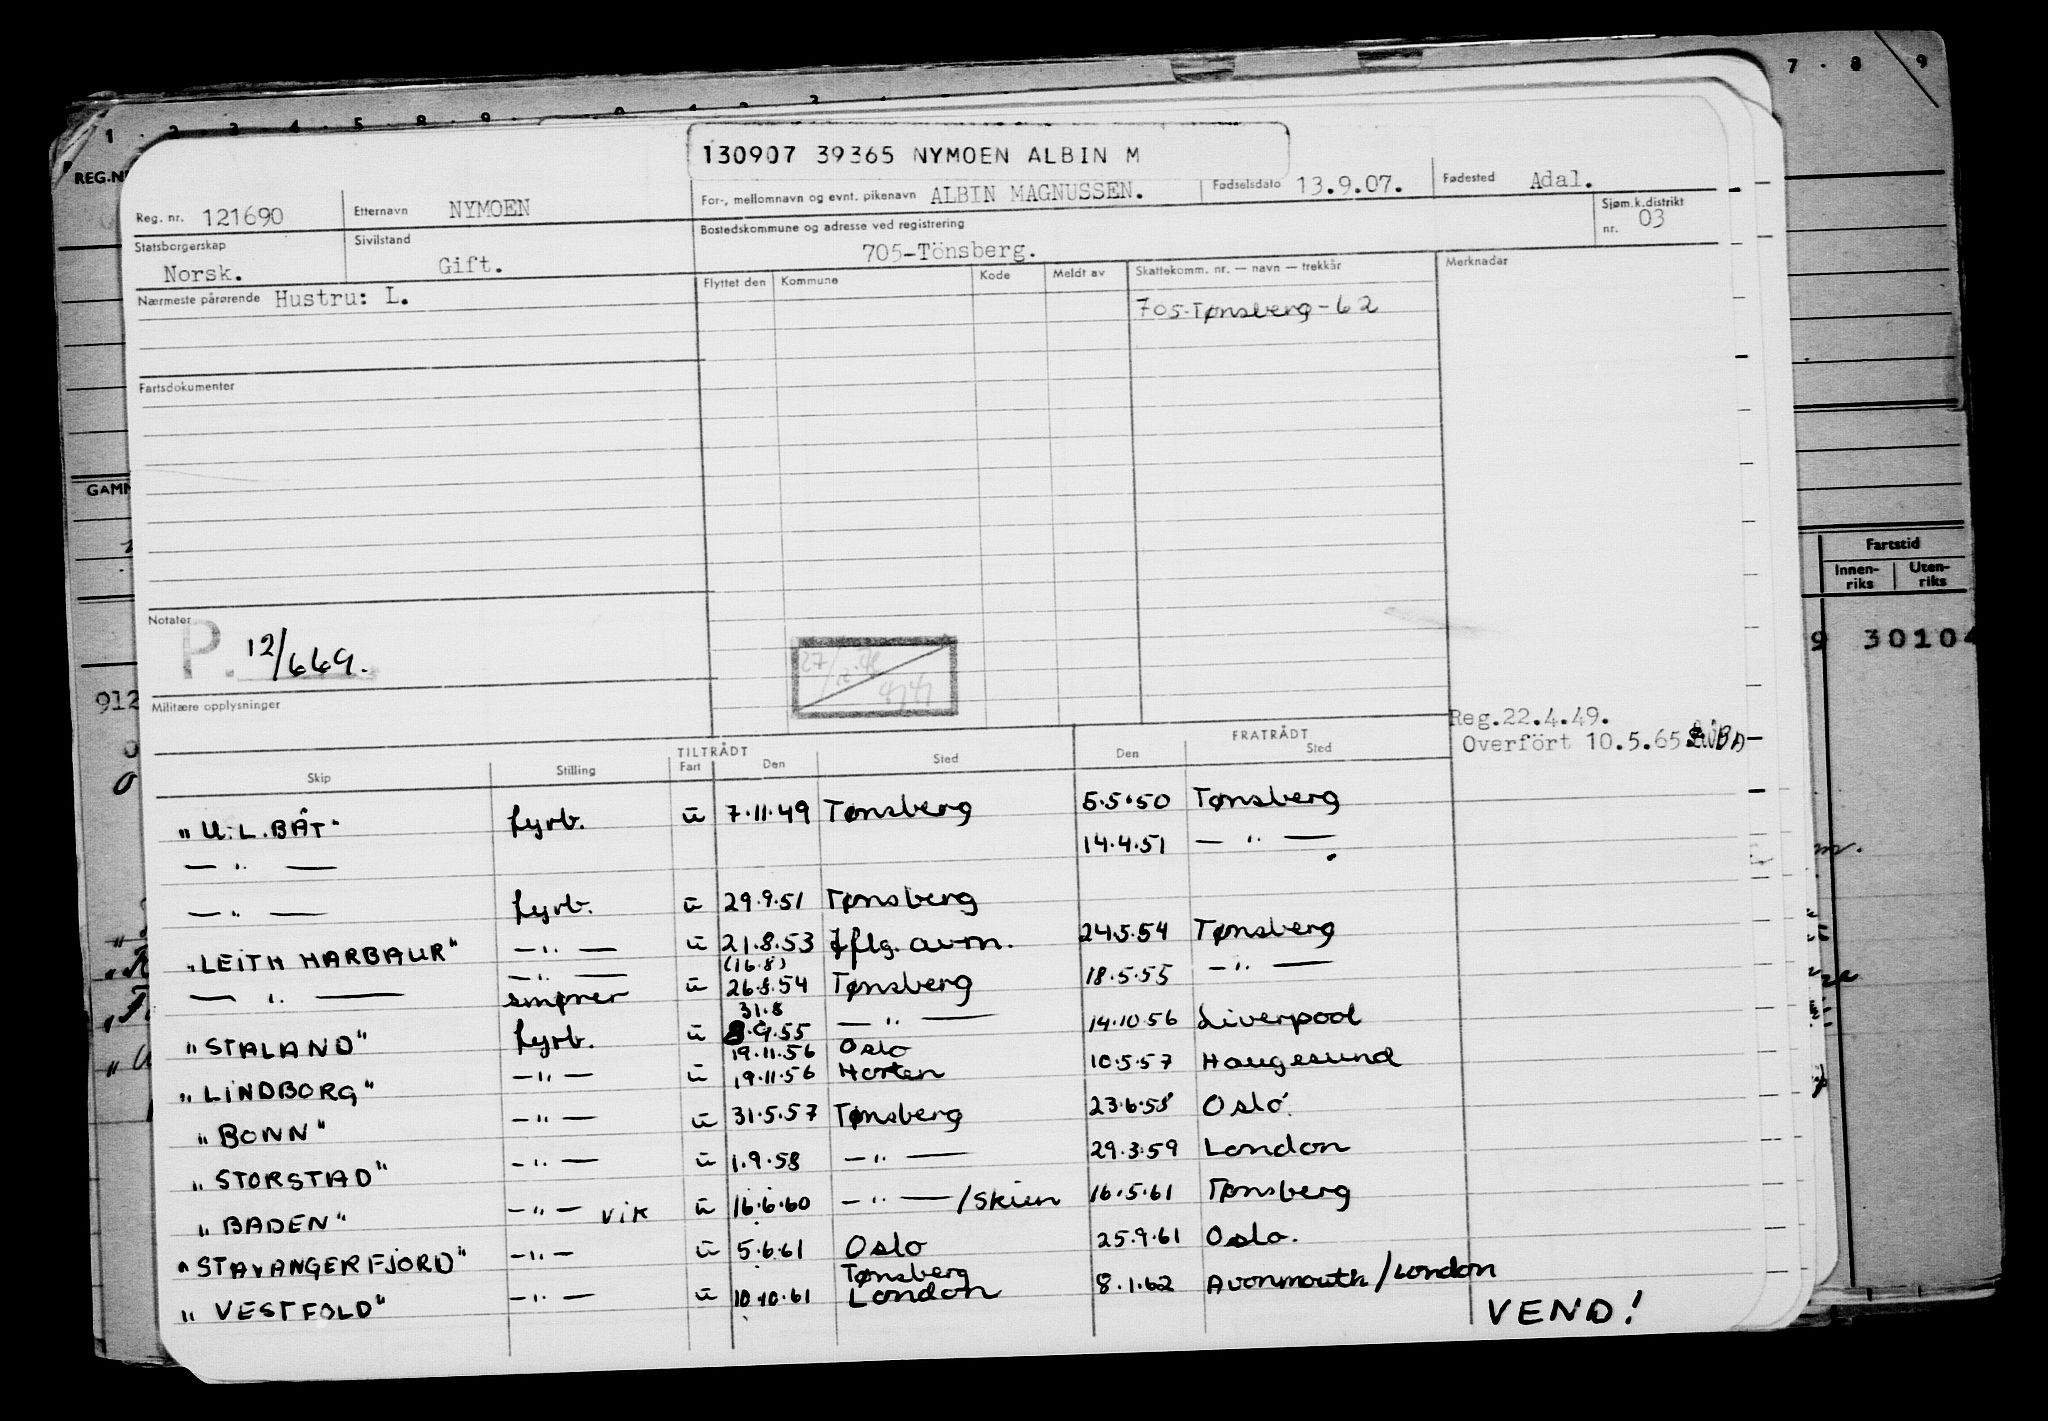 130907 39365 NYMOEN ALBIN M
Reg. nr. 121690 Etternavn NYMOEN For-, mellomnavn og evnt. pikenavn ALBIN MAGNUSSEN. Fødselsdato 13.9.07. Fødested Ådal.
Statsborgerskap Norsk. Sivilstand Gift. Bostedskommune og adresse ved registrering 705-Tönsberg. Sjøm.k.distrikt nr. 03
Nærmeste pårørende Hustru: L. Flyttet den Kommune Kode Meldt av Skattekomm. nr. — navn — trekkår Merknader
705-Tønsberg-62
Fartsdokumenter
Notater P. 12/669.
Militære opplysninger
Reg.22.4.49.
Overfört 10.5.65
TILTRÅDT FRATRÅDT
Skip Stilling Fart Den Sted Den Sted
"U.L.BÅT" fyrb. u 7.11.49 Tønsberg 5.5.50 Tønsberg
— " — 14.4.51 — " —
— " — fyrb. u 29.9.51 Tønsberg
"LEITH HARBAUR" — " — u 21.8.53 iflg. avm. 24.5.54 Tønsberg
— " — (16.8)
— " — smører u 26.8.54 Tønsberg 18.5.55 — " —
31.8
"STALAND" fyrb. u 8.9.55 — " — 14.10.56 Liverpool
19.11.56 Oslo
"LINDBORG" — " — u 19.11.56 Horten 10.5.57 Haugesund
"BONN" — " — u 31.5.57 Tønsberg 23.6.58 Oslo.
"STORSTAD" — " — u 1.9.58 — " — 29.3.59 London
"BADEN" — " — vik u 16.6.60 — " — /Skien 16.5.61 Tønsberg
"STAVANGERFJORD" — " — u 5.6.61 Oslo 25.9.61 Oslo.
Tønsberg
"VESTFOLD" — " — u 10.10.61 London 8.1.62 Avonmouth/London
VEND!
REG.NR
GAMM
912
Fartstid
Innen-riks Uten-riks
9 30104
1 . 2 . 3 . 4 . 5 . 8 . 9 .
7 . 8 . 9